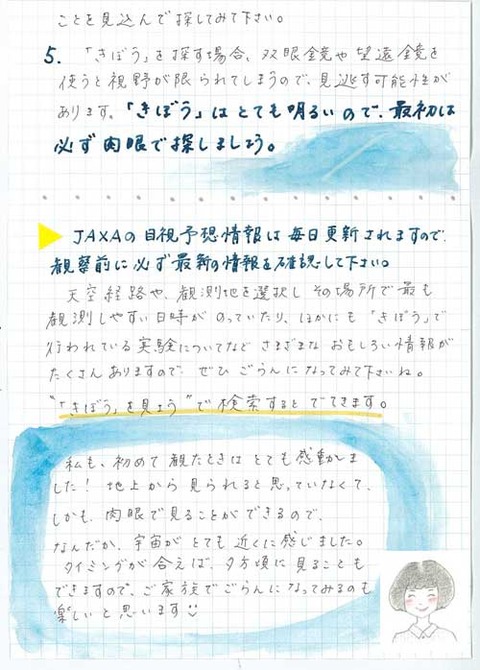 ことを見込んで探してみて下さい。
5. 「きぼう」を探す場合、双眼鏡や望遠鏡を
使うと視野が限られてしまうので、見逃す可能性が
あります。「きぼう」はとても明るいので、最初は
必ず肉眼で探しましょう。
JAXAの目視予想情報は毎日更新されますので、
観察前に必ず最新の情報を確認して下さい。
天空経路や、観測地を選択しその場所で最も
観測しやすい日時がのっていたり、ほかにも「きぼう」で
行われている実験についてなどさまざまなおもしろい情報が
たくさんありますので、ぜひごらんになってみて下さいね。
"「きぼう」を見よう"で検索するとでてきます。
私も、初めて観たときはとても感動しま
した！地上から見られると思っていなくて、
しかも、肉眼で見ることができるので、
なんだか、宇宙がとても近くに感じました。
タイミングが合えば、夕方頃に見ることも
できますので、ご家族でごらんになってみるのも
楽しいと思います